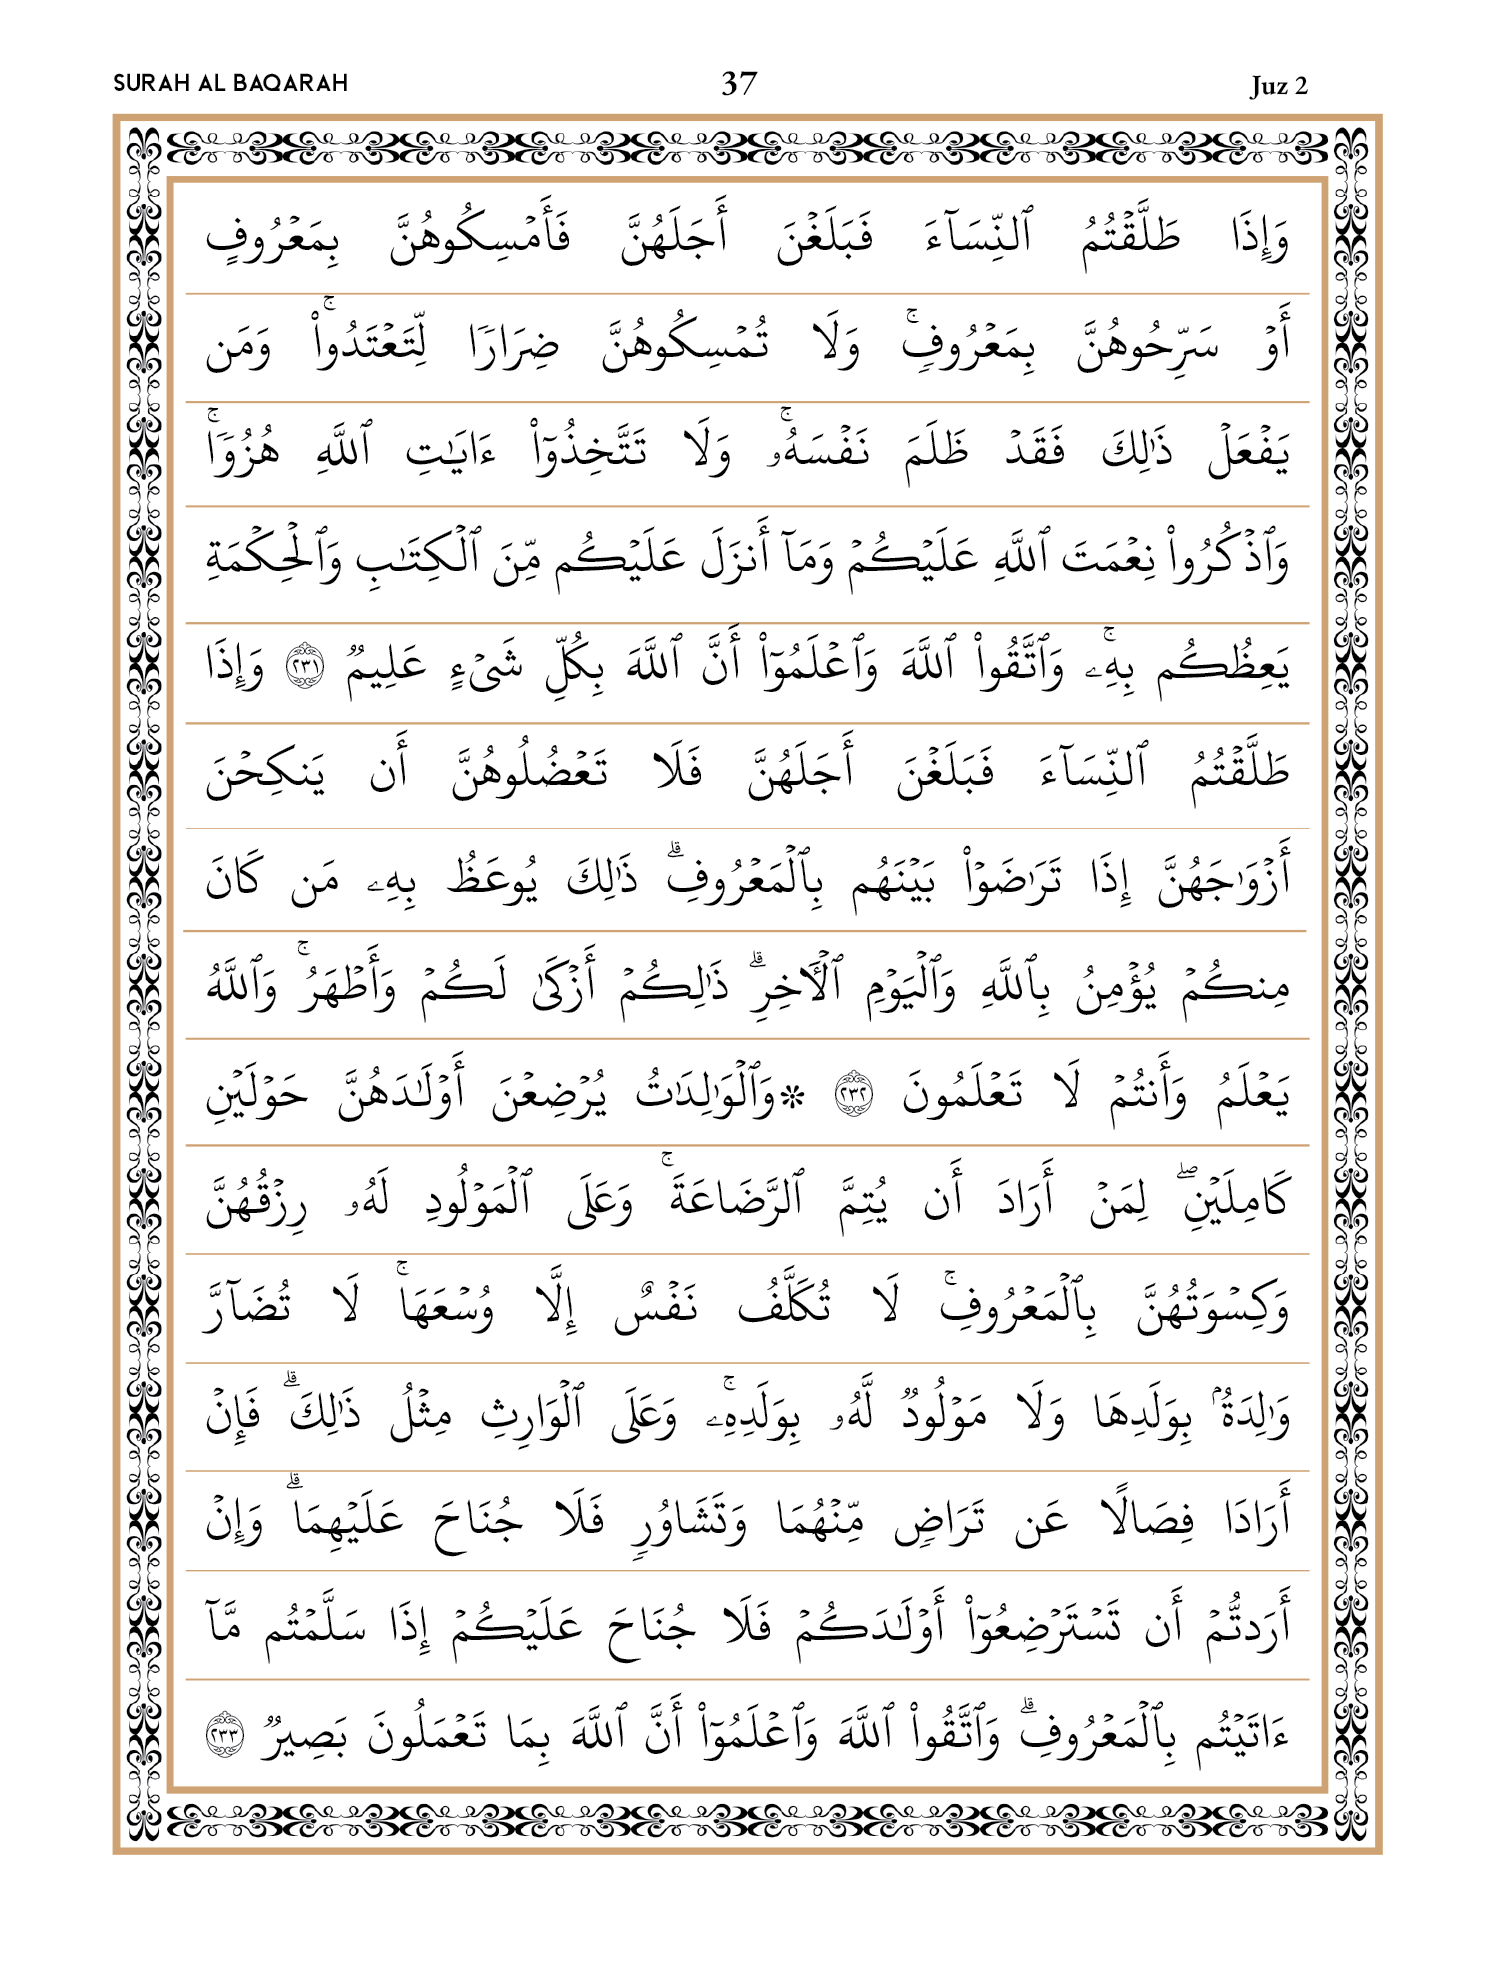 SURAH AL BAQARAH 37 Juz 2
وَإِذَا طَلَّقۡتُمُ ٱلنِّسَآءَ فَبَلَغۡنَ أَجَلَهُنَّ فَأَمۡسِكُوهُنَّ بِمَعۡرُوفٍ
أَوۡ سَرِّحُوهُنَّ بِمَعۡرُوفٖۚ وَلَا تُمۡسِكُوهُنَّ ضِرَارٗا لِّتَعۡتَدُواْۚ وَمَن
يَفۡعَلۡ ذَٰلِكَ فَقَدۡ ظَلَمَ نَفۡسَهُۥۚ وَلَا تَتَّخِذُوٓاْ ءَايَٰتِ ٱللَّهِ هُزُوٗاۚ
وَٱذۡكُرُواْ نِعۡمَتَ ٱللَّهِ عَلَيۡكُمۡ وَمَآ أَنزَلَ عَلَيۡكُم مِّنَ ٱلۡكِتَٰبِ وَٱلۡحِكۡمَةِ
يَعِظُكُم بِهِۦۚ وَٱتَّقُواْ ٱللَّهَ وَٱعۡلَمُوٓاْ أَنَّ ٱللَّهَ بِكُلِّ شَيۡءٍ عَلِيمٞ ٢٣١ وَإِذَا
طَلَّقۡتُمُ ٱلنِّسَآءَ فَبَلَغۡنَ أَجَلَهُنَّ فَلَا تَعۡضُلُوهُنَّ أَن يَنكِحۡنَ
أَزۡوَٰجَهُنَّ إِذَا تَرَٰضَوۡاْ بَيۡنَهُم بِٱلۡمَعۡرُوفِۗ ذَٰلِكَ يُوعَظُ بِهِۦ مَن كَانَ
مِنكُمۡ يُؤۡمِنُ بِٱللَّهِ وَٱلۡيَوۡمِ ٱلۡأٓخِرِۗ ذَٰلِكُمۡ أَزۡكَىٰ لَكُمۡ وَأَطۡهَرُۚ وَٱللَّهُ
يَعۡلَمُ وَأَنتُمۡ لَا تَعۡلَمُونَ ٢٣٢ ۞وَٱلۡوَٰلِدَٰتُ يُرۡضِعۡنَ أَوۡلَٰدَهُنَّ حَوۡلَيۡنِ
كَامِلَيۡنِۖ لِمَنۡ أَرَادَ أَن يُتِمَّ ٱلرَّضَاعَةَۚ وَعَلَى ٱلۡمَوۡلُودِ لَهُۥ رِزۡقُهُنَّ
وَكِسۡوَتُهُنَّ بِٱلۡمَعۡرُوفِۚ لَا تُكَلَّفُ نَفۡسٌ إِلَّا وُسۡعَهَاۚ لَا تُضَآرَّ
وَٰلِدَةُۢ بِوَلَدِهَا وَلَا مَوۡلُودٞ لَّهُۥ بِوَلَدِهِۦۚ وَعَلَى ٱلۡوَارِثِ مِثۡلُ ذَٰلِكَۗ فَإِنۡ
أَرَادَا فِصَالًا عَن تَرَاضٖ مِّنۡهُمَا وَتَشَاوُرٖ فَلَا جُنَاحَ عَلَيۡهِمَاۗ وَإِنۡ
أَرَدتُّمۡ أَن تَسۡتَرۡضِعُوٓاْ أَوۡلَٰدَكُمۡ فَلَا جُنَاحَ عَلَيۡكُمۡ إِذَا سَلَّمۡتُم مَّآ
ءَاتَيۡتُم بِٱلۡمَعۡرُوفِۗ وَٱتَّقُواْ ٱللَّهَ وَٱعۡلَمُوٓاْ أَنَّ ٱللَّهَ بِمَا تَعۡمَلُونَ بَصِيرٞ ٢٣٣